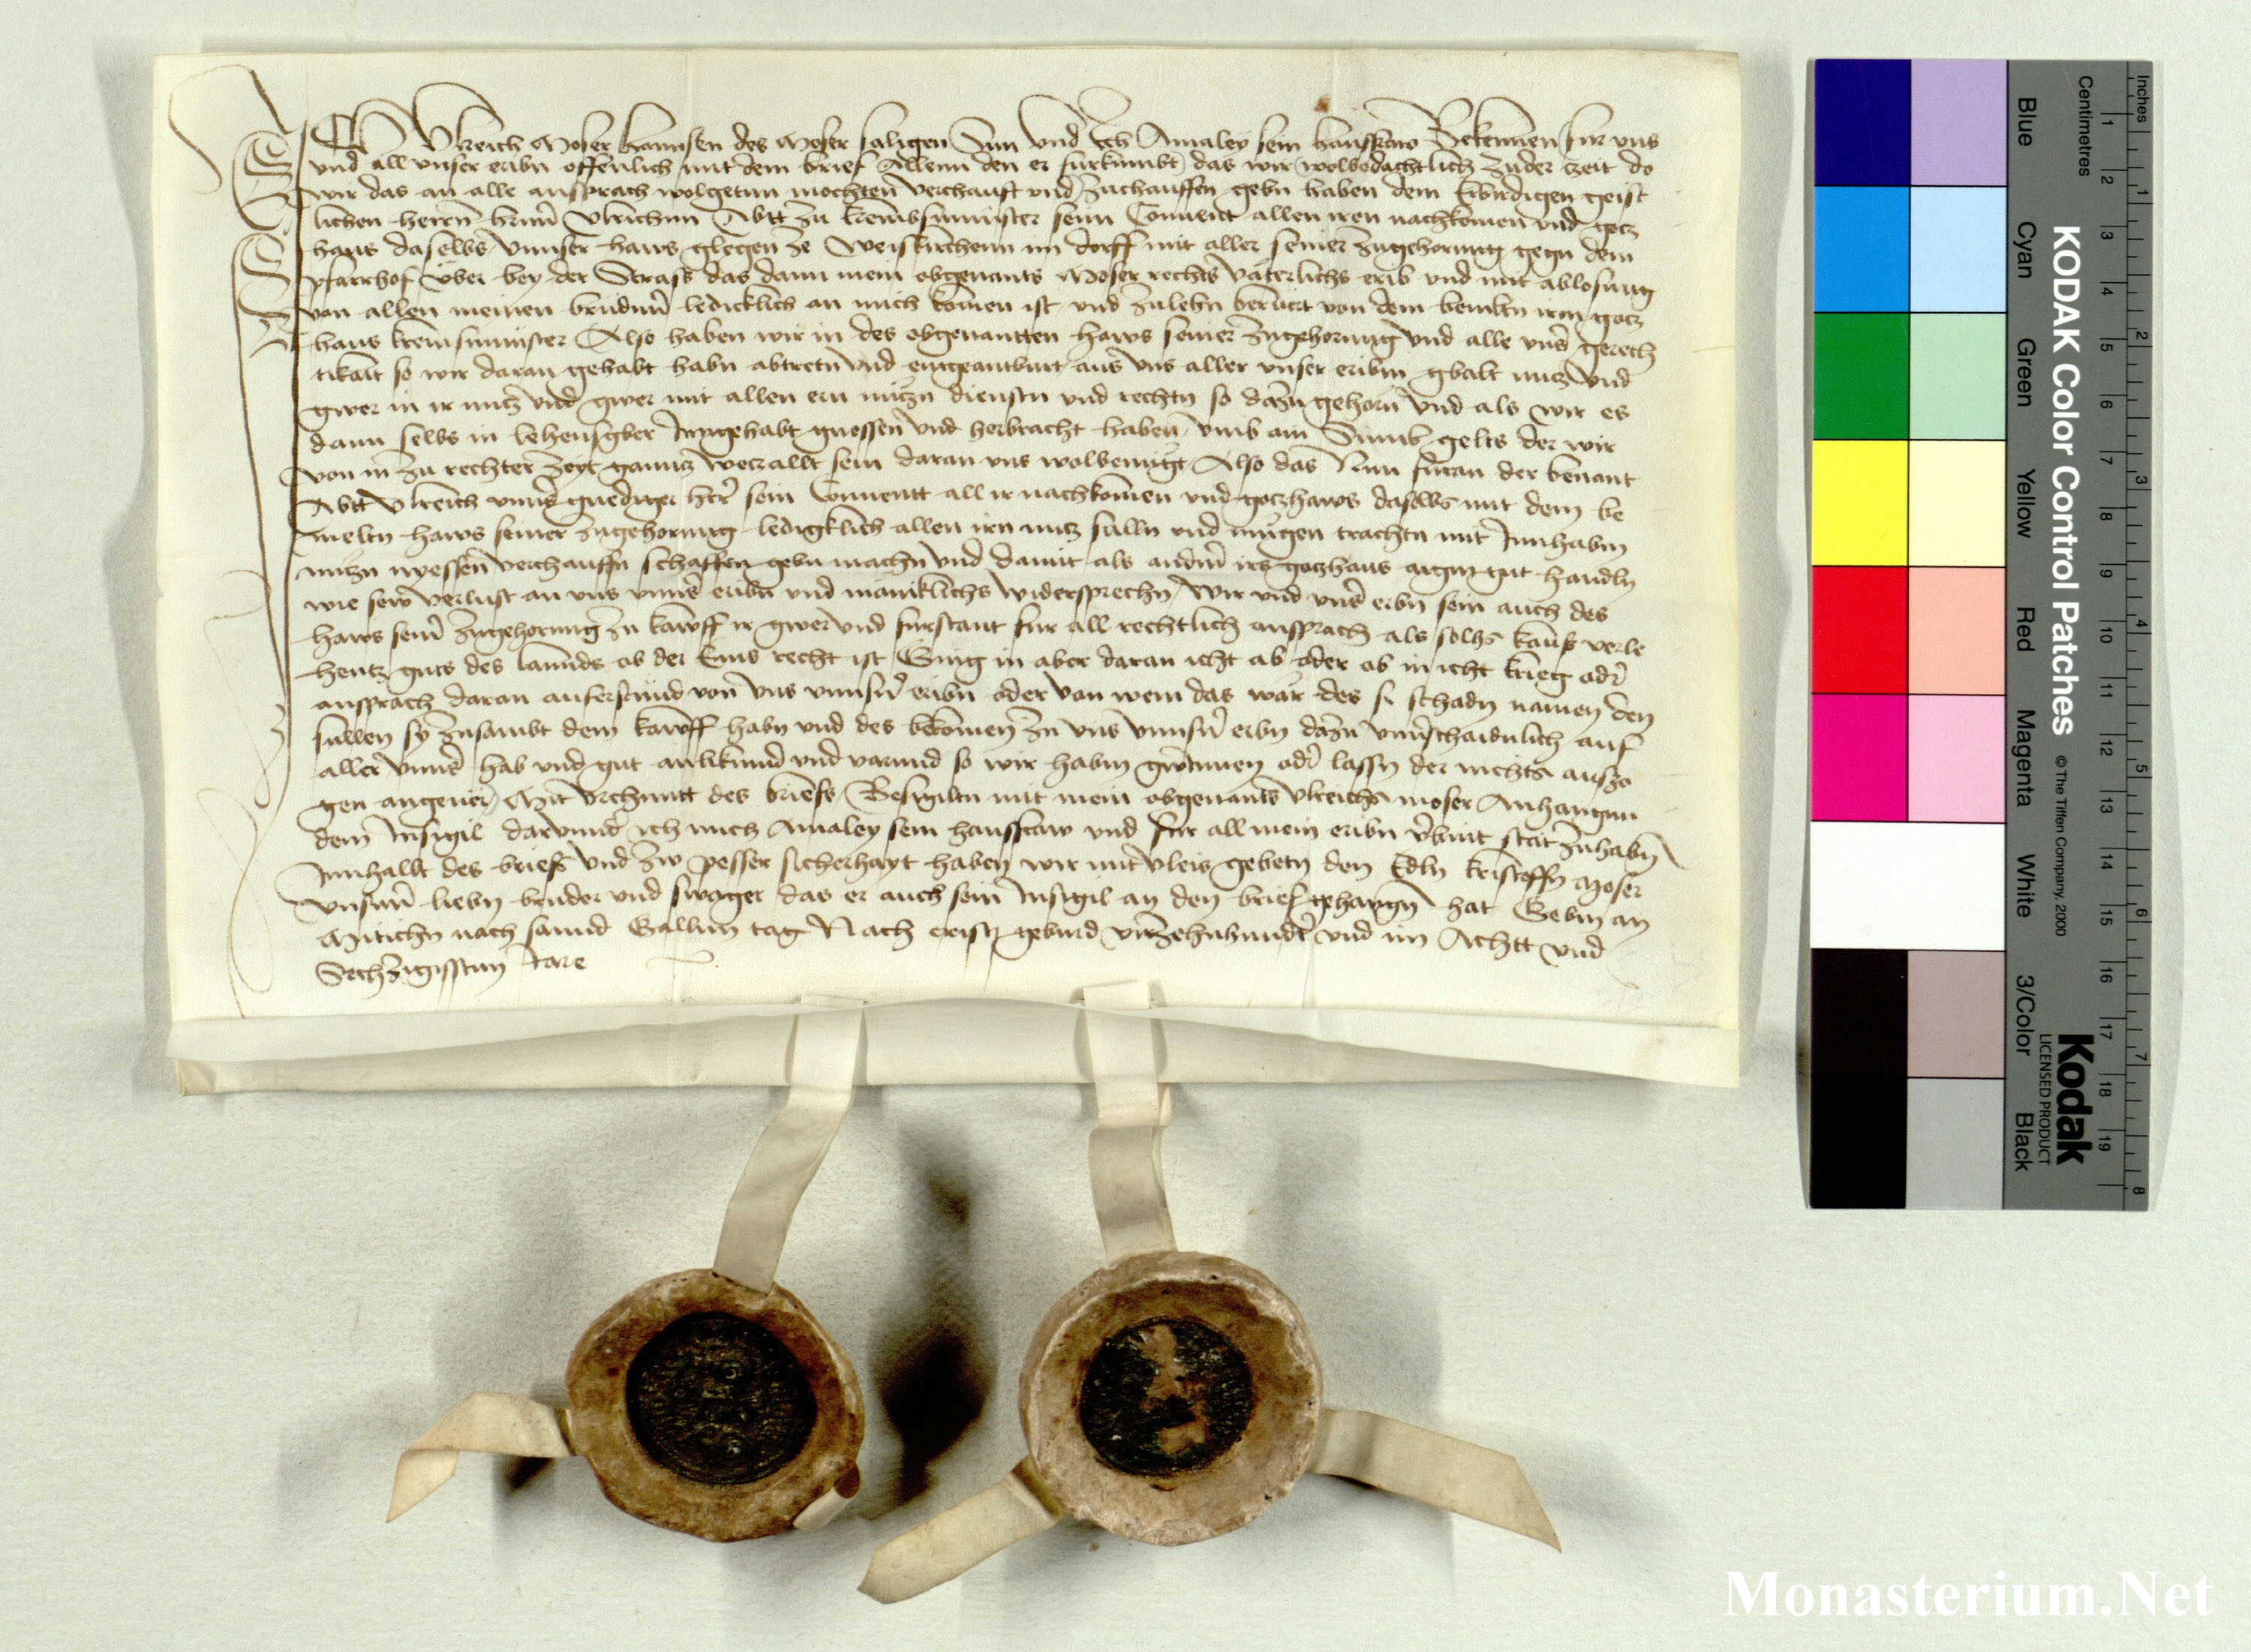 Ich Ulreich Moser Hannsen des Moser saligen Sun und Ich Amaley sein hausfraw Bekennen fur uns
und all unser eribn offenlich mit dem brief Allenn den er furkumbt das wir wolbedachtlich zuder zeit do
wir das an alle ansprach wolgetun mochten verchaufft und zuchauffen gebn haben dem Erwirdigen geist
lichen herrn herrn Ulrichnn Abtt zu Krembsmunster seim Convent allen iren nachkomen und gotz
haus daselbs unnser haws glegen ze Weiskirchenn im dorff mit aller seiner zugehorung gegn dem
pfarrhof uber bey der Strass das dann mein obgenants Moser rechts vaterlichs erib und mit ablosung
von allen meinen brudern ledicklich an mich komen ist und zulehn berurt von dem bemeltn irm gotz
haus kremsmunster Also haben wir in des obgenantten haws seiner zugehorung und alle unser gerech
tikait so wir daran gehabt habn abtretn und eingeantburt aus uns aller unser eribm gbalt nutz und
gwer in ir nutz und gwer mit allen ern nutzn dienstn und rechtn so dazu gehorn und als wir es
dann selbs in lehensgber Inngehabt gnossen und herbracht haben umb am Summ gelts der wir
von in zu rechter zeyt ganntz betzallt sein daran uns wolbenugt Also das Nun furan der benant
Abtt Ulreich unnser gnediger herr sein Conventt all ir nachkomen und gotzhaws daselbs mit dem be
melten haws seiner zugehorung ledigklich allen irn nutz sulln und mugen trachtn mit Innhabm
nutzn nyessen verchauffn schaffen gebn machn und damit als anderm irs gotzhaus aigm gut handln
wie sew verlust an uns unnser eribn und mainklichs widersprechn Wir und unser erbn sein auch des
haws seiner zugehorung zu kawff ir gwer und furstant fur all rechtlich ansprach als solhs kaufs verle
hentz guts des lannds ob der Enns recht ist Gieng in aber daran icht ab oder ob in icht krieg oder
ansprach daran auferstund von uns unnsern eribn oder von wem das war des si schadn namen den
sullen sy zusambt dem kawff habn und des bekomen zu uns unnsern erbn dazu unverschaidnlich auf
aller unnser hab und gut anlikund und varund so wir habm gwinnen oder lassn der nichts ausgezo
gen angever Mit urchunt des briefs Besigiltn mit mein obgenants Ulreichs moser Anhangun
dem Insigil darunder ich mich Amaley sein hausfraw und fur all mein eribn verbint stat zuhabn
Innhallt des briefs und zw pesser sicherhayt haben wir mit vleis gebetn den Edln kristoffn Moser
unsern liebn bruder und swager das er auch sein Insigil an den brief gehangn hat Gebm an
Mitichn nach sannd Gallnn tag Nach cristi geburd virzehnhundert und im Achtt und
Sechzigisstim Jare
KODAK Color Control Patches
© The Tiffen Company, 2000
Kodak
LICENSED PRODUCT
Blue Cyan Green Yellow Red Magenta White 3/Color Black
Inches 1 2 3 4 5 6 7 8
Centimetres 1 2 3 4 5 6 7 8 9 10 11 12 13 14 15 16 17 18 19
Monasterium.Net